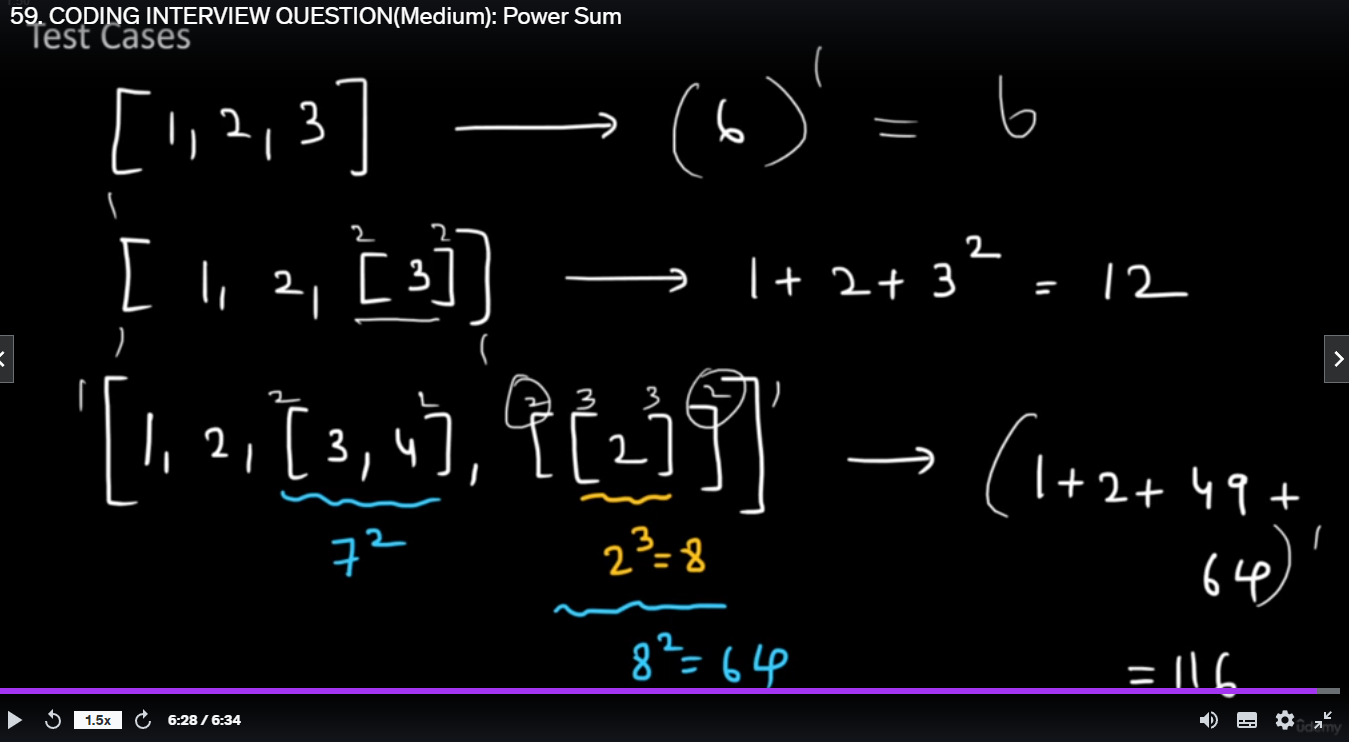 59. CODING INTERVIEW QUESTION(Medium): Power Sum
Test Cases
[1, 2, 3] → (6)¹ = 6
[1, 2, ²[3]²] → 1 + 2 + 3² = 12
¹[1, 2, ²[3, 4]², ²[³[2]³]²]¹ → (1 + 2 + 49 +
64)¹
7²
2³ = 8
8² = 64
= 116
1.5x
6:28 / 6:34
ûdemy